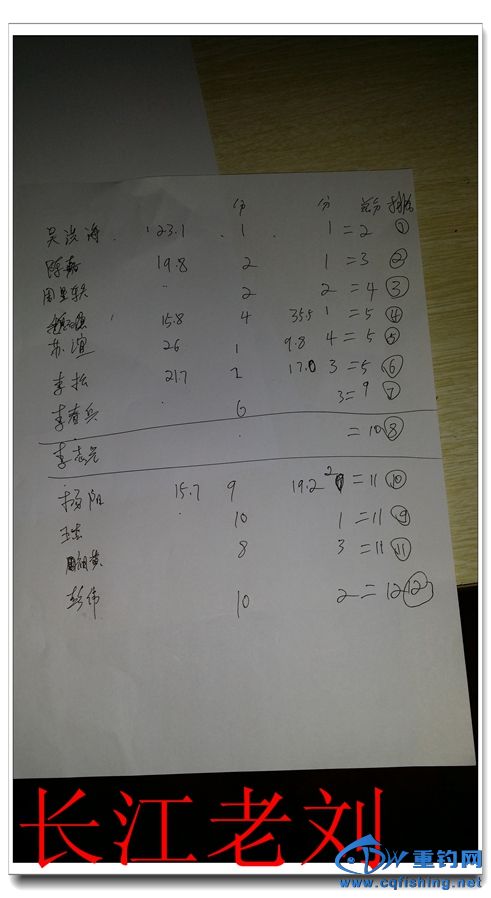 分 分 总分 排名
吴洪海 23.1 1 1=2 ①
陈嘉 19.8 2 1=3 ②
周 轶 2 2=4 ③
15.8 4 35.5 1=5 ④
苏谊 26 1 9.8 4=5 ⑤
李松 217 2 17.0 3=5 ⑥
李有兵 6 3=9 ⑦
李志光 =10 ⑧
杨阳 15.7 9 19.2 2=11 ⑩
王杰 10 1=11 ⑨
8 3=11 ⑪
彭伟 10 2=12 ⑫
长江老刘
重钓网
www.cqfishing.net